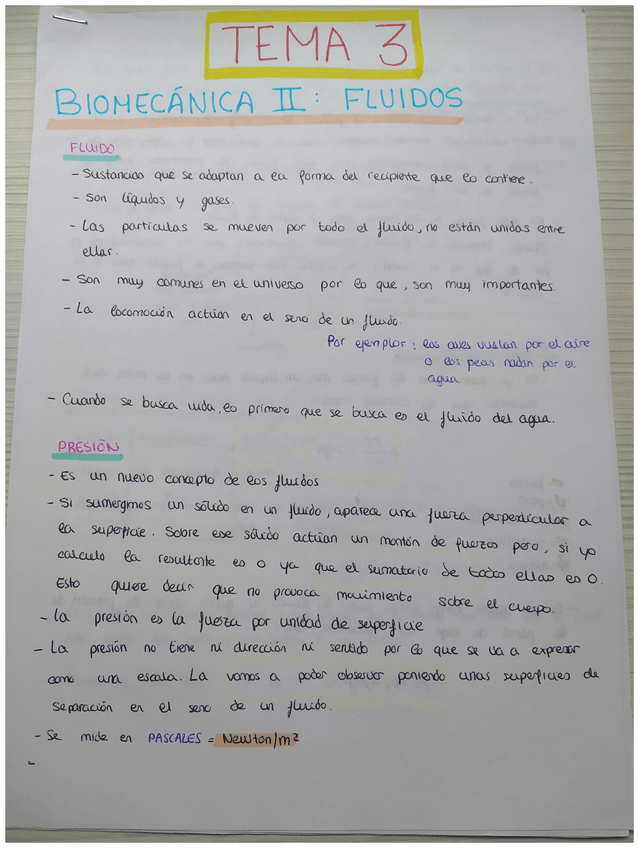 TEMA 3
BIOMECÁNICA II: FLUIDOS
FLUIDO
- Sustancias que se adaptan a la forma del recipiente que lo contiene.
- Son líquidos y gases.
- Las partículas se mueven por todo el fluido, no están unidas entre
ellas.
- Son muy comunes en el universo por lo que, son muy importantes.
- La locomoción actúan en el seno de un fluido.
Por ejemplos: las aves vuelan por el aire
o los peces nadan por el
agua
- Cuando se busca vida, lo primero que se busca es el fluido del agua.
PRESIÓN
- Es un nuevo concepto de los fluidos
- Si sumergimos un sólido en un fluido, aparece una fuerza perpendicular a
la superficie. Sobre ese sólido actúan un montón de fuerzas pero, si yo
calculo la resultante es 0 ya que el sumatorio de todas ellas es 0.
Esto quiere decir que no provoca movimiento sobre el cuerpo.
- La presión es la fuerza por unidad de superficie
- La presión no tiene ni dirección ni sentido por lo que se va a expresar
como una escala. La vamos a poder observar poniendo unas superficies de
separación en el seno de un fluido.
- Se mide en PASCALES = Newton/m²
-